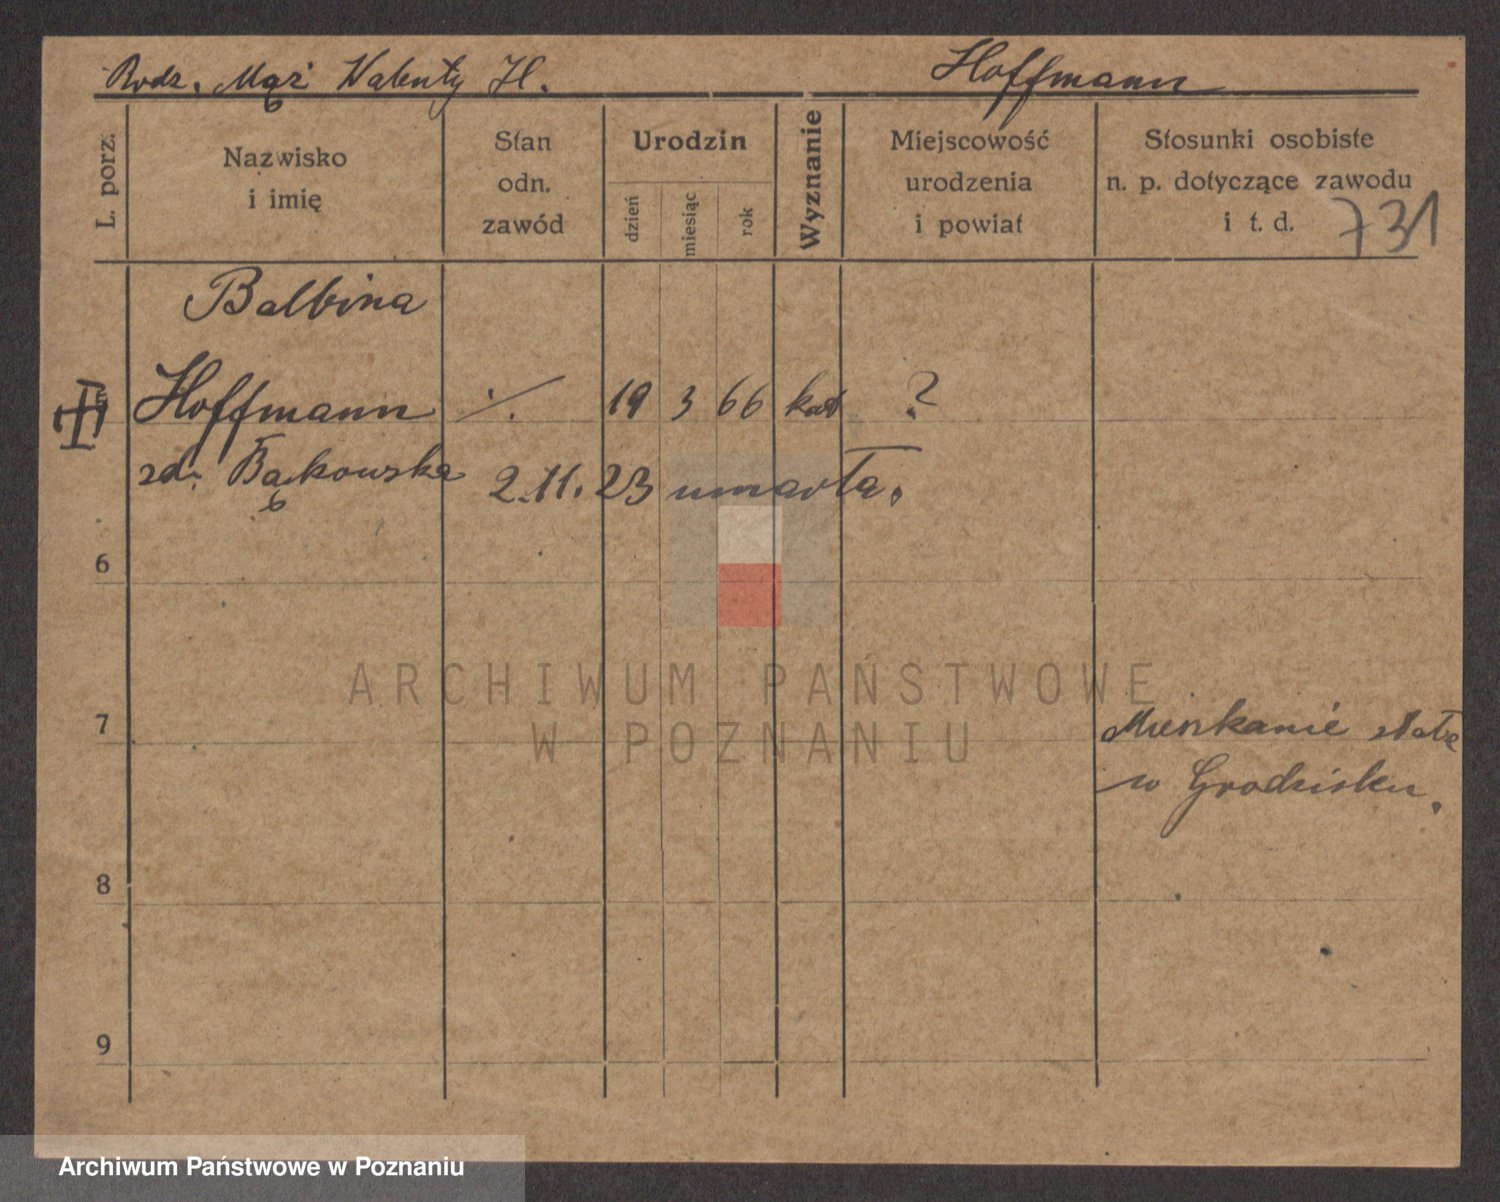 Rodz. Mąż Walenty H. Hoffmann
L. porz.
Nazwisko
i imię
Stan
odn.
zawód
Urodzin
dzień
miesiąc
rok
Wyznanie
Miejscowość
urodzenia
i powiat
Stosunki osobiste
n. p. dotyczące zawodu
i t. d.
731
Balbina
Hoffmann ./. 19 3 66 kat ?
zd. Bąkowska 2.11.23 umarła.
5
6
7
Mieszkanie stałe
w Grodzisku.
8
9
ARCHIWUM PAŃSTWOWE
W POZNANIU
Archiwum Państwowe w Poznaniu